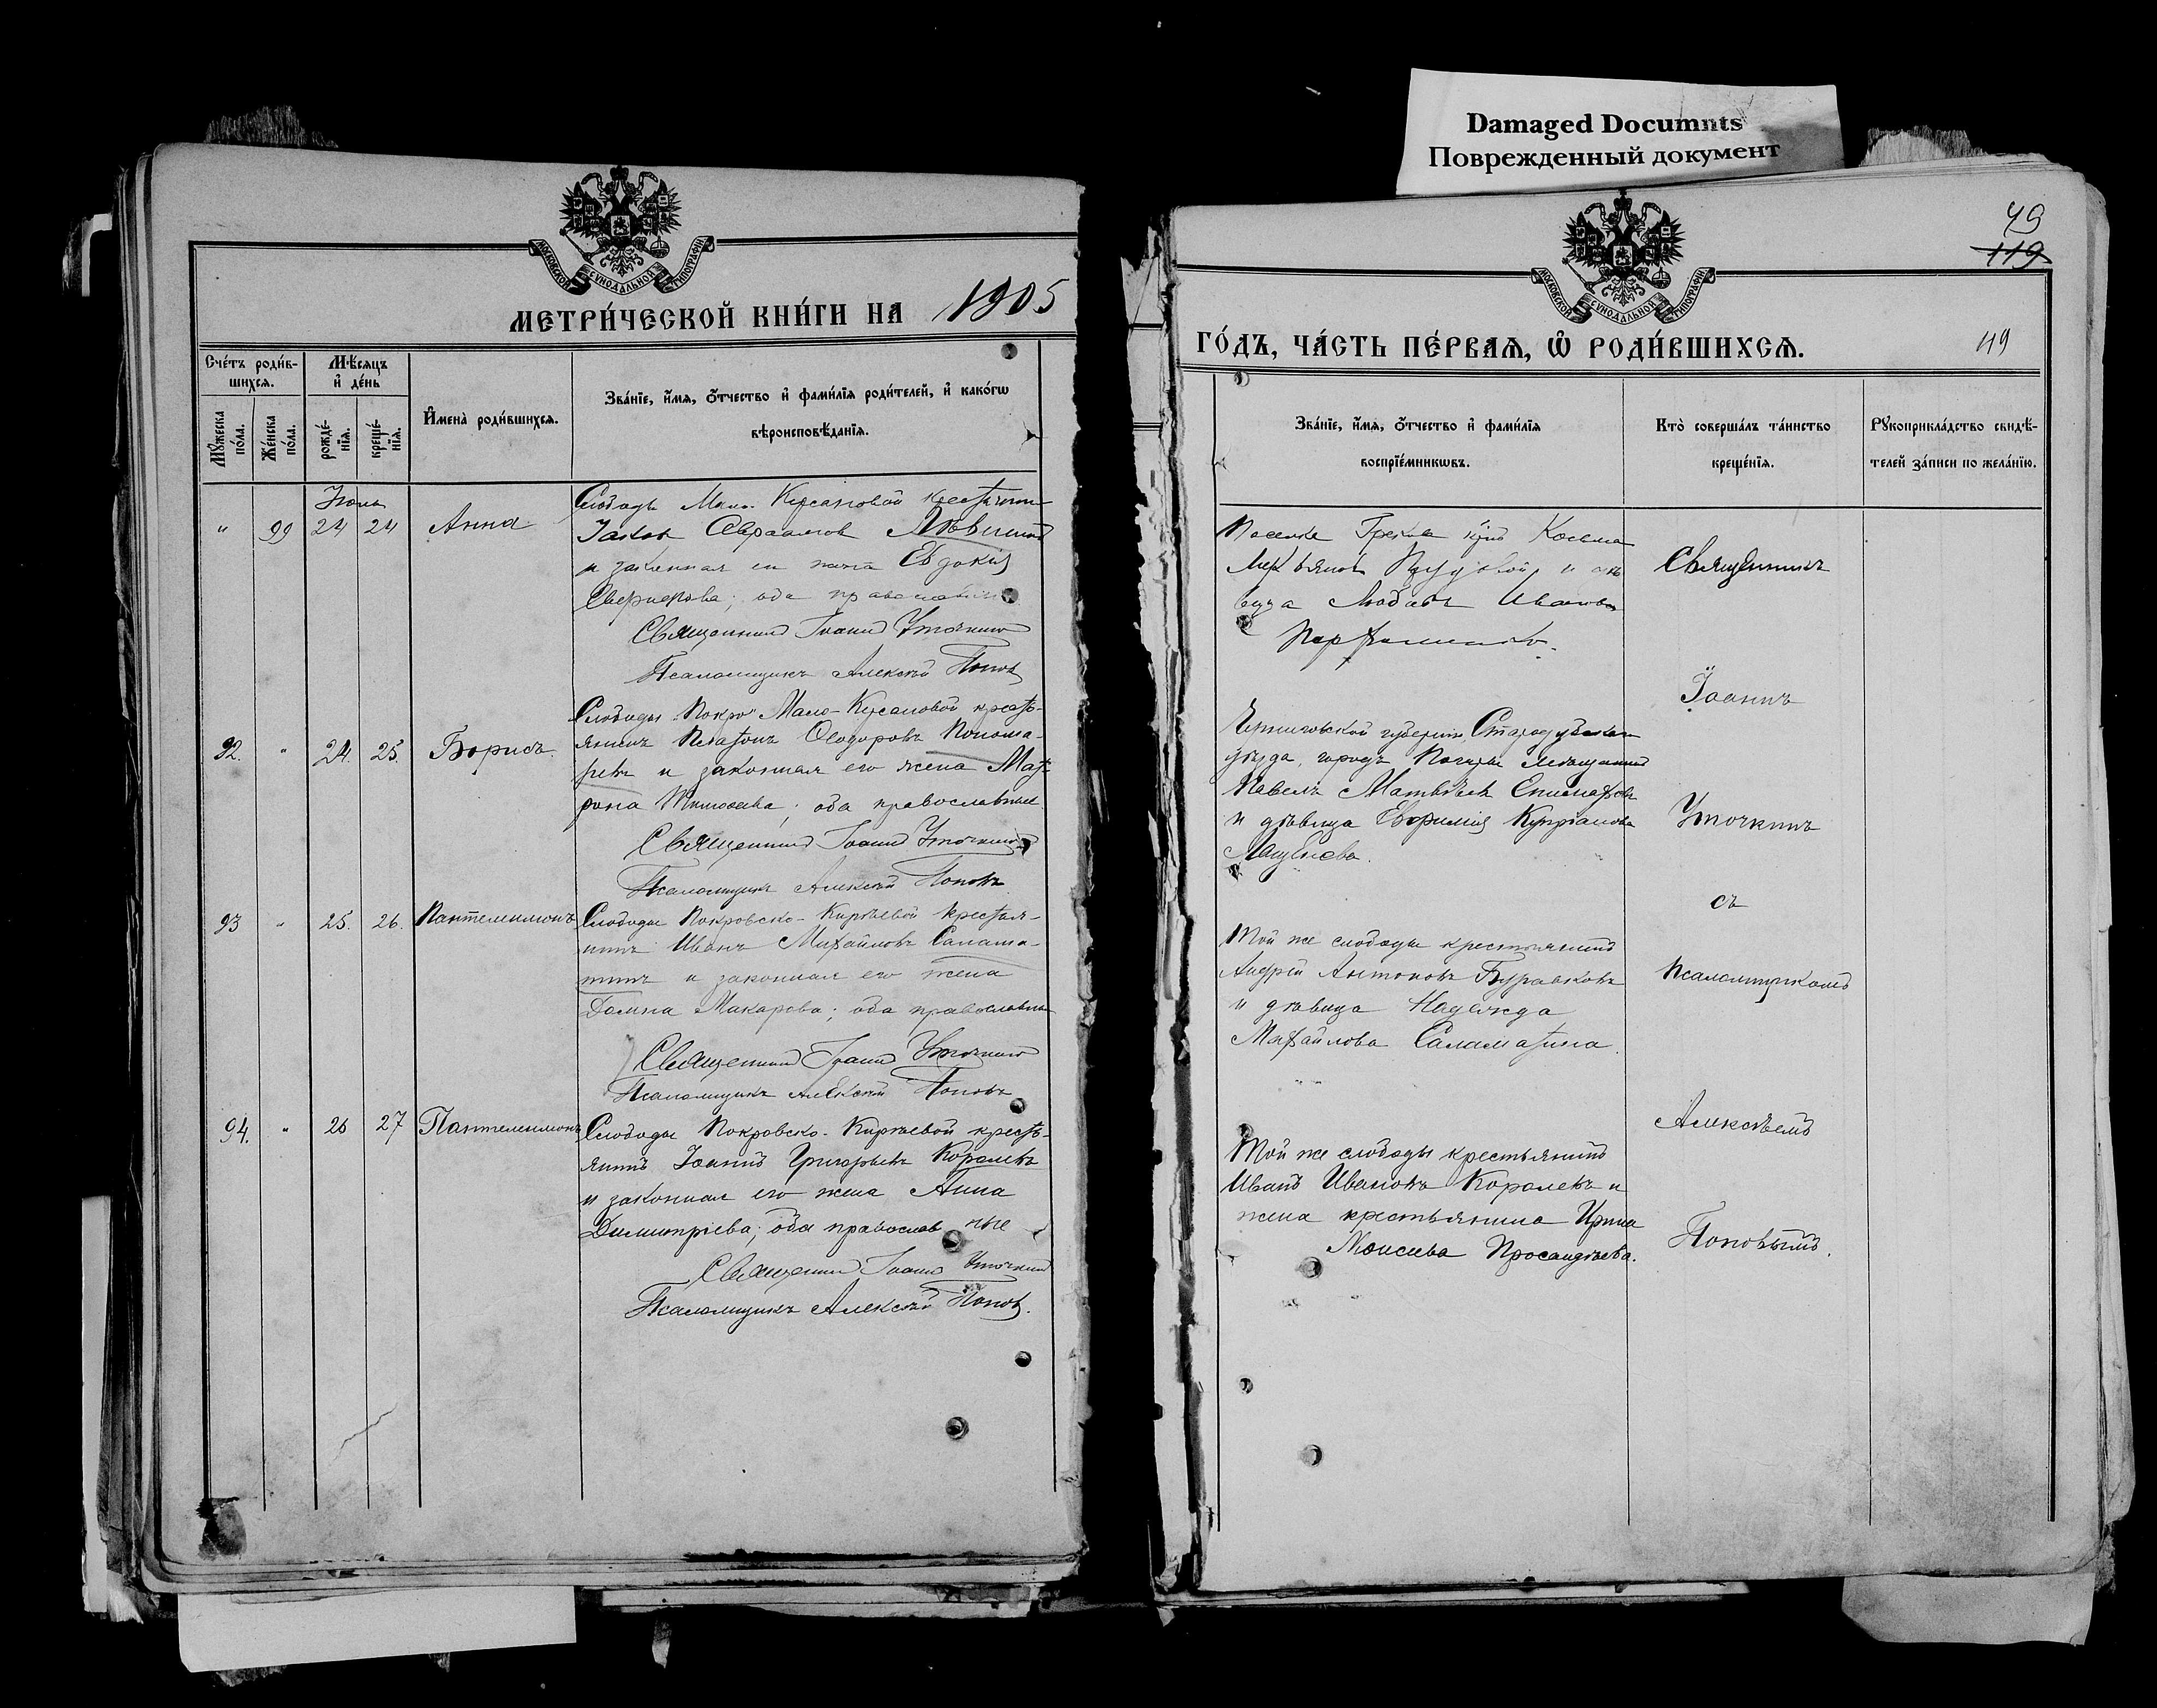 Damaged Documnts
Поврежденный документ
МОСКОВСКОЙ СУНОДАЛЬНОЙ ТИПОГРАФІИ
МЕТРИ́ЧЕСКОЙ КНИ́ГИ НА 1905
Сче́тъ роди́в-
шихсѧ.
Мѣ́сѧцъ
и҆ де́нь
Мꙋ́жеска
по́ла.
Же́нска
по́ла.
рожде́-
нїѧ.
креще́-
нїѧ.
И҆мена̀ роди́вшихсѧ.
Зва́нїе, и҆́мѧ, ѻ҆́тчество и҆ фами́лїѧ роди́телей, и҆ како́гѡ
вѣроисповѣ́данїѧ.
" 99 24 24 Анна
Слободы Мало-Кирсановой
и законная его жена Евдокія
Священникъ Іоаннъ Уточкинъ
Псаломщикъ Алексѣй Поповъ
92. " 24. 25. Борисъ.
Слободы "Покро" Мало-Кирсановой кресть-
янинъ Платонъ Ѳеодоровъ Понома-
ревъ и законная его жена Мат-
рона Тимоѳеева; оба православные
Священникъ Іоаннъ Уточкинъ
Псаломщикъ Алексѣй Поповъ
93 " 25. 26. Пантелеимонъ
Слободы Покровско-Кирѣевой крестья-
нинъ Иванъ Михайловъ Салама-
тинъ и законная его жена
Домна Макарова; оба православные
Священникъ Іоаннъ Уточкинъ
Псаломщикъ Алексѣй Поповъ
94. " 26 27 Пантелеимонъ
Слободы Покровско-Кирѣевой кресть-
янинъ Іоаннъ Григорьевъ Королевъ
и законная его жена Анна
Димитріева; оба православные
Священникъ Іоаннъ Уточкинъ
Псаломщикъ Алексѣй Поповъ.
49
119
МОСКОВСКОЙ СУНОДАЛЬНОЙ ТИПОГРАФІИ
ГО́ДЪ, ЧА́СТЬ ПЕ́РВАѦ, Ѡ҆ РОДИ́ВШИХСѦ.
49
Зва́нїе, и҆́мѧ, ѻ҆́тчество и҆ фами́лїѧ
воспрїе́мникѡвъ.
Кто̀ соверша́лъ та́инство
креще́нїѧ.
Рꙋкоприкла́дство свидѣ́-
телей за́писи по жела́нїю.
Косьма
Иванова
Черниговской губерніи, Стародубскаго
уѣзда, города Погара мѣщанинъ
Павелъ Матвѣевъ
и дѣвица Евфимія Купріанова
Той же слободы крестьянинъ
Андрей Антоновъ Буравковъ
и дѣвица Надежда
Михайлова Саламатина.
Той же слободы крестьянинъ
Иванъ Ивановъ Королевъ и
жена крестьянина Ирина
Моисеева
Священникъ
Іоаннъ
Уточкинъ
съ
Псаломщикомъ
Алексѣемъ
Поповымъ.